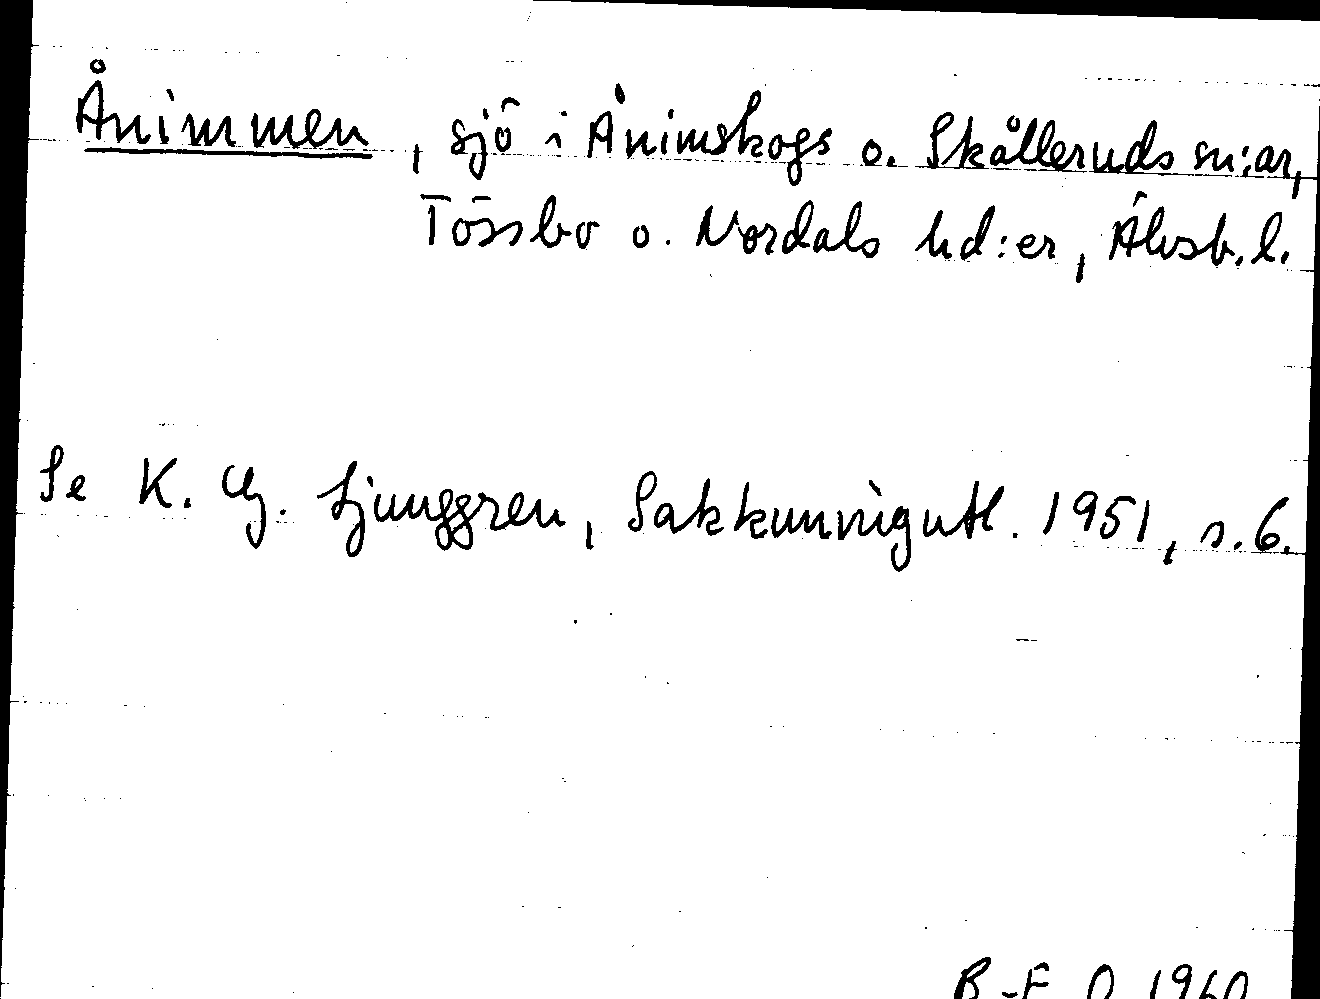 Ånimmen, sjö i Ånimskogs o. Skålleruds sn:ar,
Tössbo o. Nordals hd:er, Älvsb. l.
Se K. G. Ljunggren, Sakkunnigutl. 1951, s. 6.
B-E O 1960